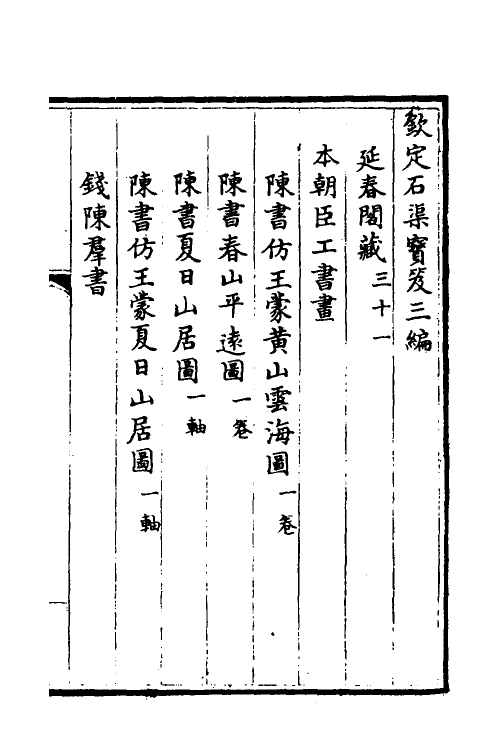 欽定石渠寶笈三編
延春閣藏三十一
本朝臣工書畫
陳書仿王蒙黄山雲海圖一卷
陳書春山平遠圖一卷
陳書夏日山居圖一軸
陳書仿王蒙夏日山居圖一軸
錢陳羣書